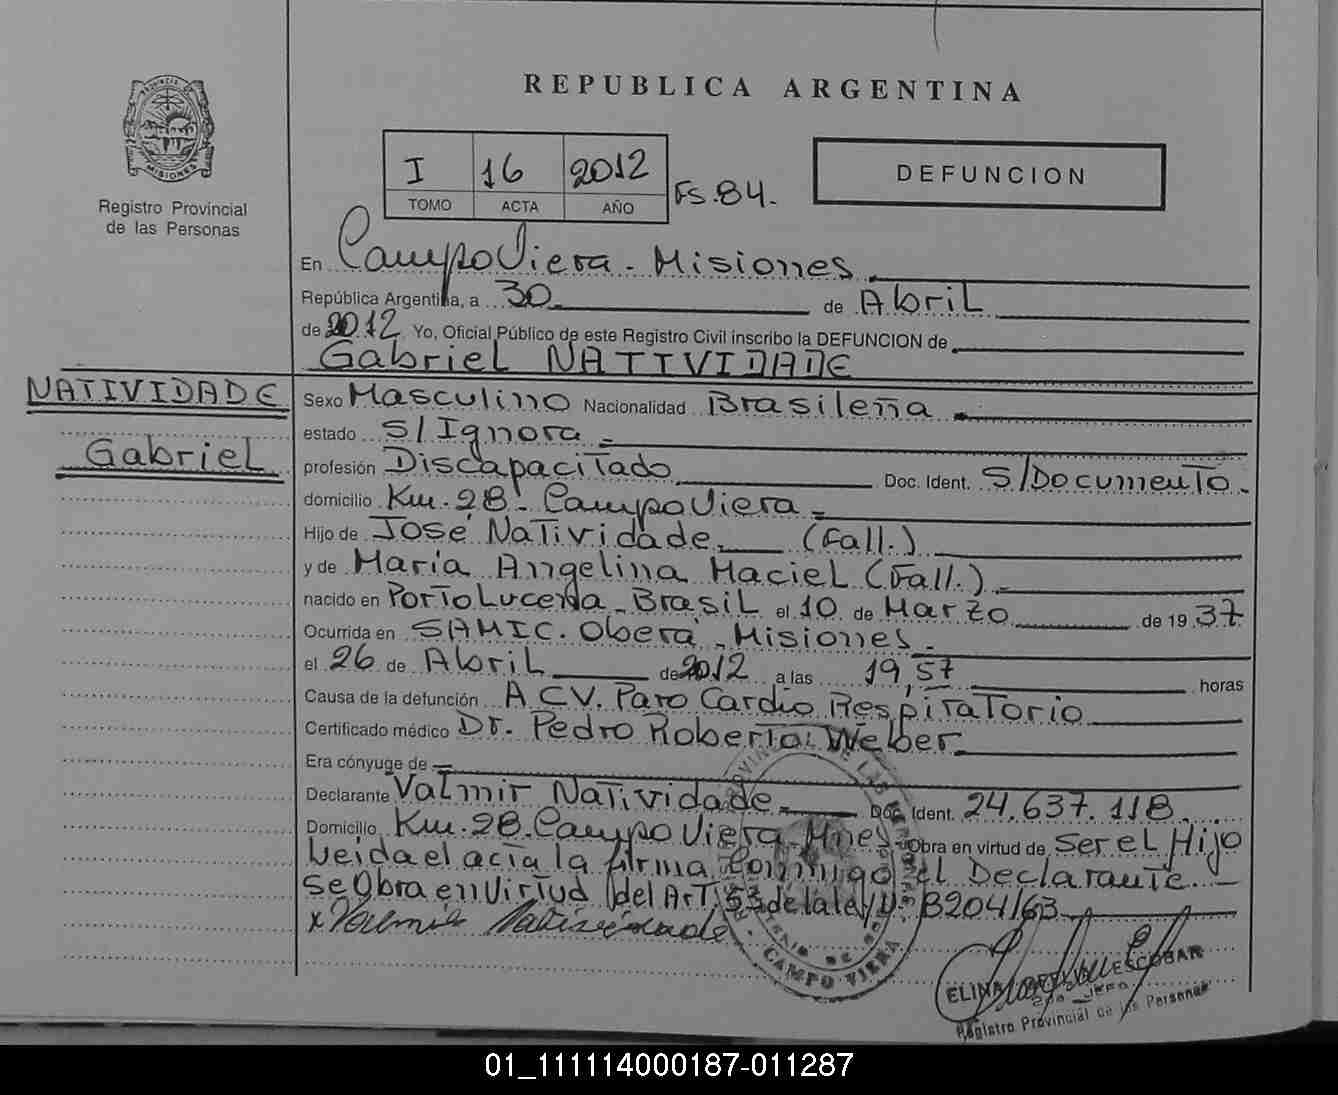 REPUBLICA ARGENTINA
PROVINCIA DE MISIONES
Registro Provincial
de las Personas
I 16 2012 Fs.84.
TOMO ACTA AÑO
DEFUNCION
En Campo Viera - Misiones
República Argentina, a 30 de Abril
de 2012 Yo, Oficial Público de este Registro Civil inscribo la DEFUNCION de
Gabriel NATIVIDADE
NATIVIDADE
Gabriel
Sexo Masculino Nacionalidad Brasileña
estado S/Ignora
profesión Discapacitado Doc. Ident. S/Documento.
domicilio Km. 28 - Campo Viera
Hijo de José Natividade (Fall.)
y de María Angelina Maciel (Fall.)
nacido en Porto Lucena - Brasil el 10 de Marzo de 1937
Ocurrida en SAMIC. Oberá - Misiones
el 26 de Abril de 2012 a las 19,57 horas
Causa de la defunción ACV. Paro Cardio Respiratorio
Certificado médico Dr. Pedro Roberto Weber
Era cónyuge de
Declarante Valmir Natividade Doc. Ident. 24.637.118
Domicilio Km. 28. Campo Viera Mnes Obra en virtud de Ser el Hijo
Leida el acta la firma Conmigo el Declarante
Se Obra en Virtud del Art. 53 de la ley 8204/63
x Natividade
CAMPO VIERA
ELINA ESCOBAR
Registro Provincial de las Personas
01_111114000187-011287